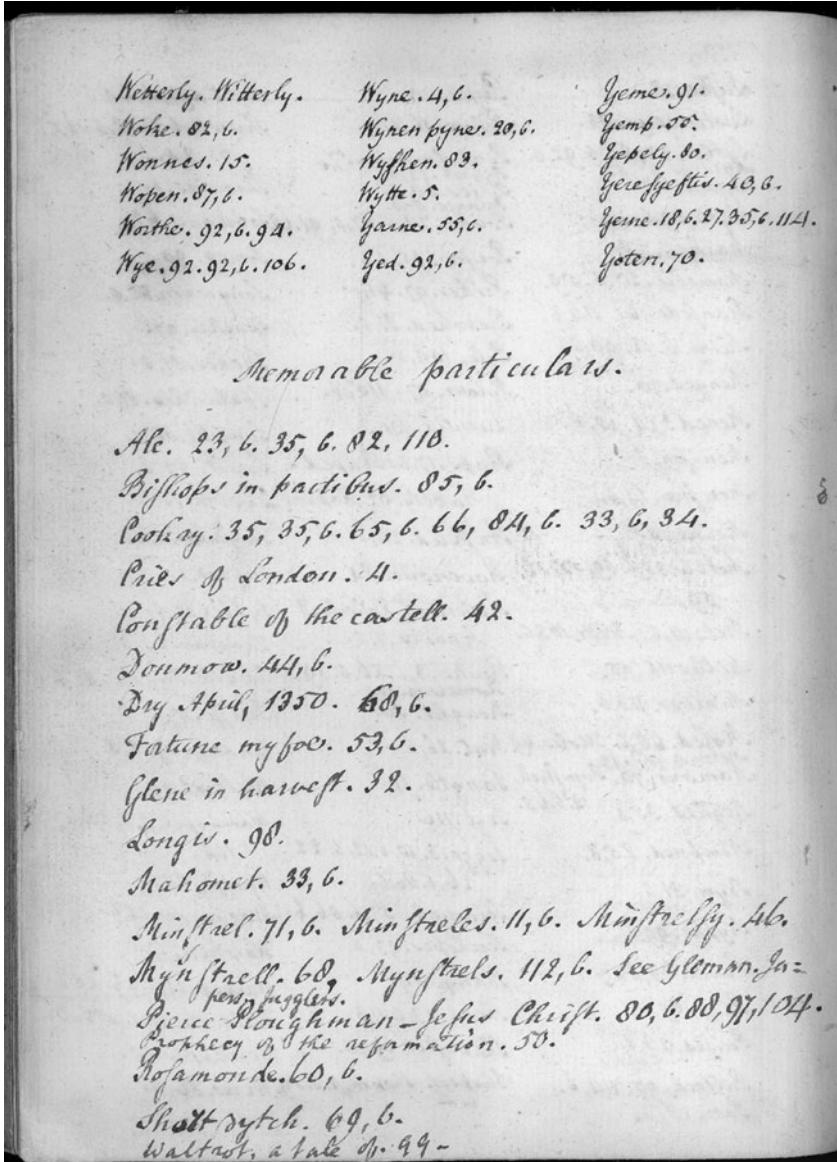 Wetterly. Witterly.
Woke. 82, b.
Wonnes. 15.
Wopen. 87, b.
Worthe. 92, b. 94.
Wye. 92. 92, b. 106.
Wyne. 4, b.
Wynen pyne. 20, b.
Wyſhen. 83.
Wytte. 5.
Yarne. 55, b.
Yed. 92, b.
Yeme. 91.
Yemp. 55.
Yepely. 80.
Yereſyeftis. 40, b.
Yerne. 18, b. 27. 35, b. 114.
Yoten. 70.
Memorable particulars.
Ale. 23, b. 35, b. 82, 110.
Biſhops in partibus. 85, b.
Cookry. 35, 35, b. 65, b. 66, 84, b. 33, b, 34.
Cries of London. 4.
Conſtable of the castell. 42.
Donmow. 44, b.
Dry April, 1350. 68, b.
Fortune my foe. 53, b.
Glene in harveſt. 32.
Longis. 98.
Mahomet. 33, b.
Minſtrel. 71, b. Minſtreles. 11, b. Minſtrelſy. 46.
Mynſtrell. 68, Mynſtrels. 112, b. See Gleman. Ja=
pers, Jugglers.
Pierce Ploughman – Jeſus Chriſt. 80, b. 88, 97, 104.
Prophecy of the reformation. 50.
Roſamonde. 60, b.
Shottdytch. 69, b.
Waltrot, a tale of. 99 –